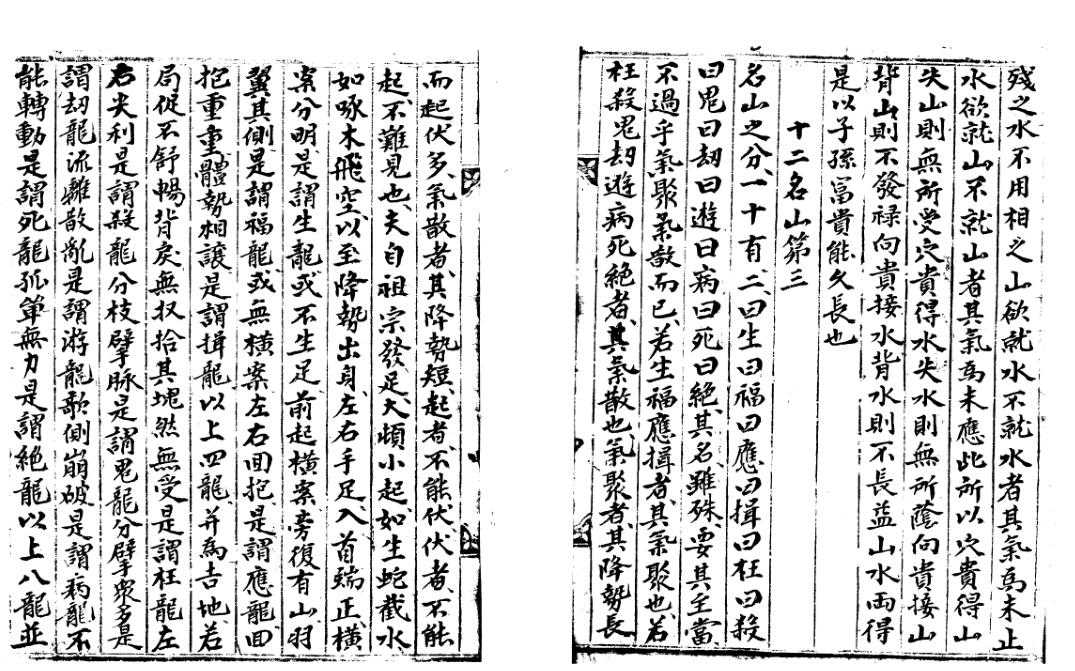 殘之水不用相之山欲就水不就水者其氣爲未止
水欲就山不就山者其氣爲未應此所以穴貴得山
失山則無所受穴貴得水失水則無所蔭向貴接山
背山則不發祿向貴接水背水則不長益山水両得
是以子孫富貴能久長也
十二名山第三
名山之分一十有二曰生曰福曰應曰揖曰枉曰殺
曰鬼曰刼曰遊曰病曰死曰絶其名雖殊要其主當
不過乎氣聚氣散而已若生福應揖者其氣聚也若
枉殺鬼刼遊病死絶者其氣散也氣聚者其降勢長
而起伏多氣散者其降勢短起者不能伏伏者不能
起不難見也夫自祖宗發足大頓小起如生蛇截水
如啄木飛空以至降勢出身左右手足入首端正橫
案分明是謂生龍或不生足前起橫案旁復有山羽
翼其側是謂福龍或無橫案左右回抱是謂應龍回
抱重重體勢相讓是謂揖龍以上四龍并為吉地若
局促不舒暢背戾無収拾其塊然無受是謂枉龍左
右尖利是謂殺龍分枝擘脉是謂鬼龍分擘衆多是
謂刼龍流離散亂是謂游龍欹側崩破是謂病龍不
能轉動是謂死龍孤單無力是謂絶龍以上八龍並